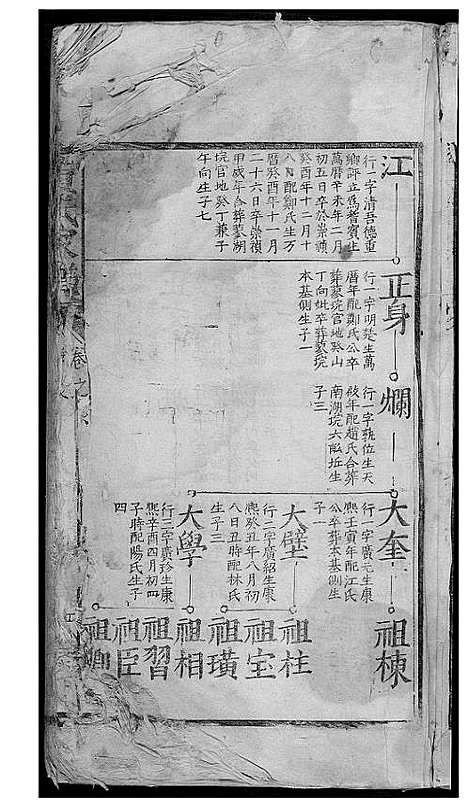 江
行一字清吾德重
鄉評立為耆賓生
萬曆辛未年二月
初五日卒於崇禎
癸酉年十二月十
八日配鄭氏生万
曆癸酉年十一月
二十六日卒崇禎
甲戌年合葬蒙湖
垸官地癸丁兼子
午向生子七
正身
行一字明楚生萬
曆年配鄭氏公卒
葬蒙垸官地癸山
丁向妣卒葬蒙垸
本基側生子一
爛
行一字執位生天
啟年配趙氏合葬
南湖垸六畝坵生
子三
大奎
行一字廣元生康
熙壬寅年配江氏
公卒葬本基側生
子一
大壁
行二字廣紹生康
熙癸丑年八月初
八日丑時配林氏
生子三
大學
行三字廣珍生康
熙辛酉四月初四
子時配陽氏生子
四
祖棟
祖柱
祖宝
祖璜
祖相
祖習
祖臣
祖
氏家譜
卷之